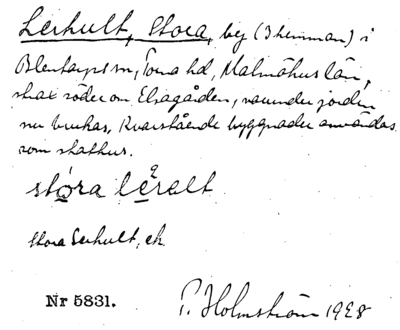 Lerhult, Stora, by (3 hemman) i
Blentarps sn, Torna hd, Malmöhus län,
strax söder om Elsagården, varunder jorden
nu brukas. Kvarstående byggnader användas
som stathus.
stóra lèralt
Stora Lerhult, ek
Nr 5831.
P. Holmström 1928